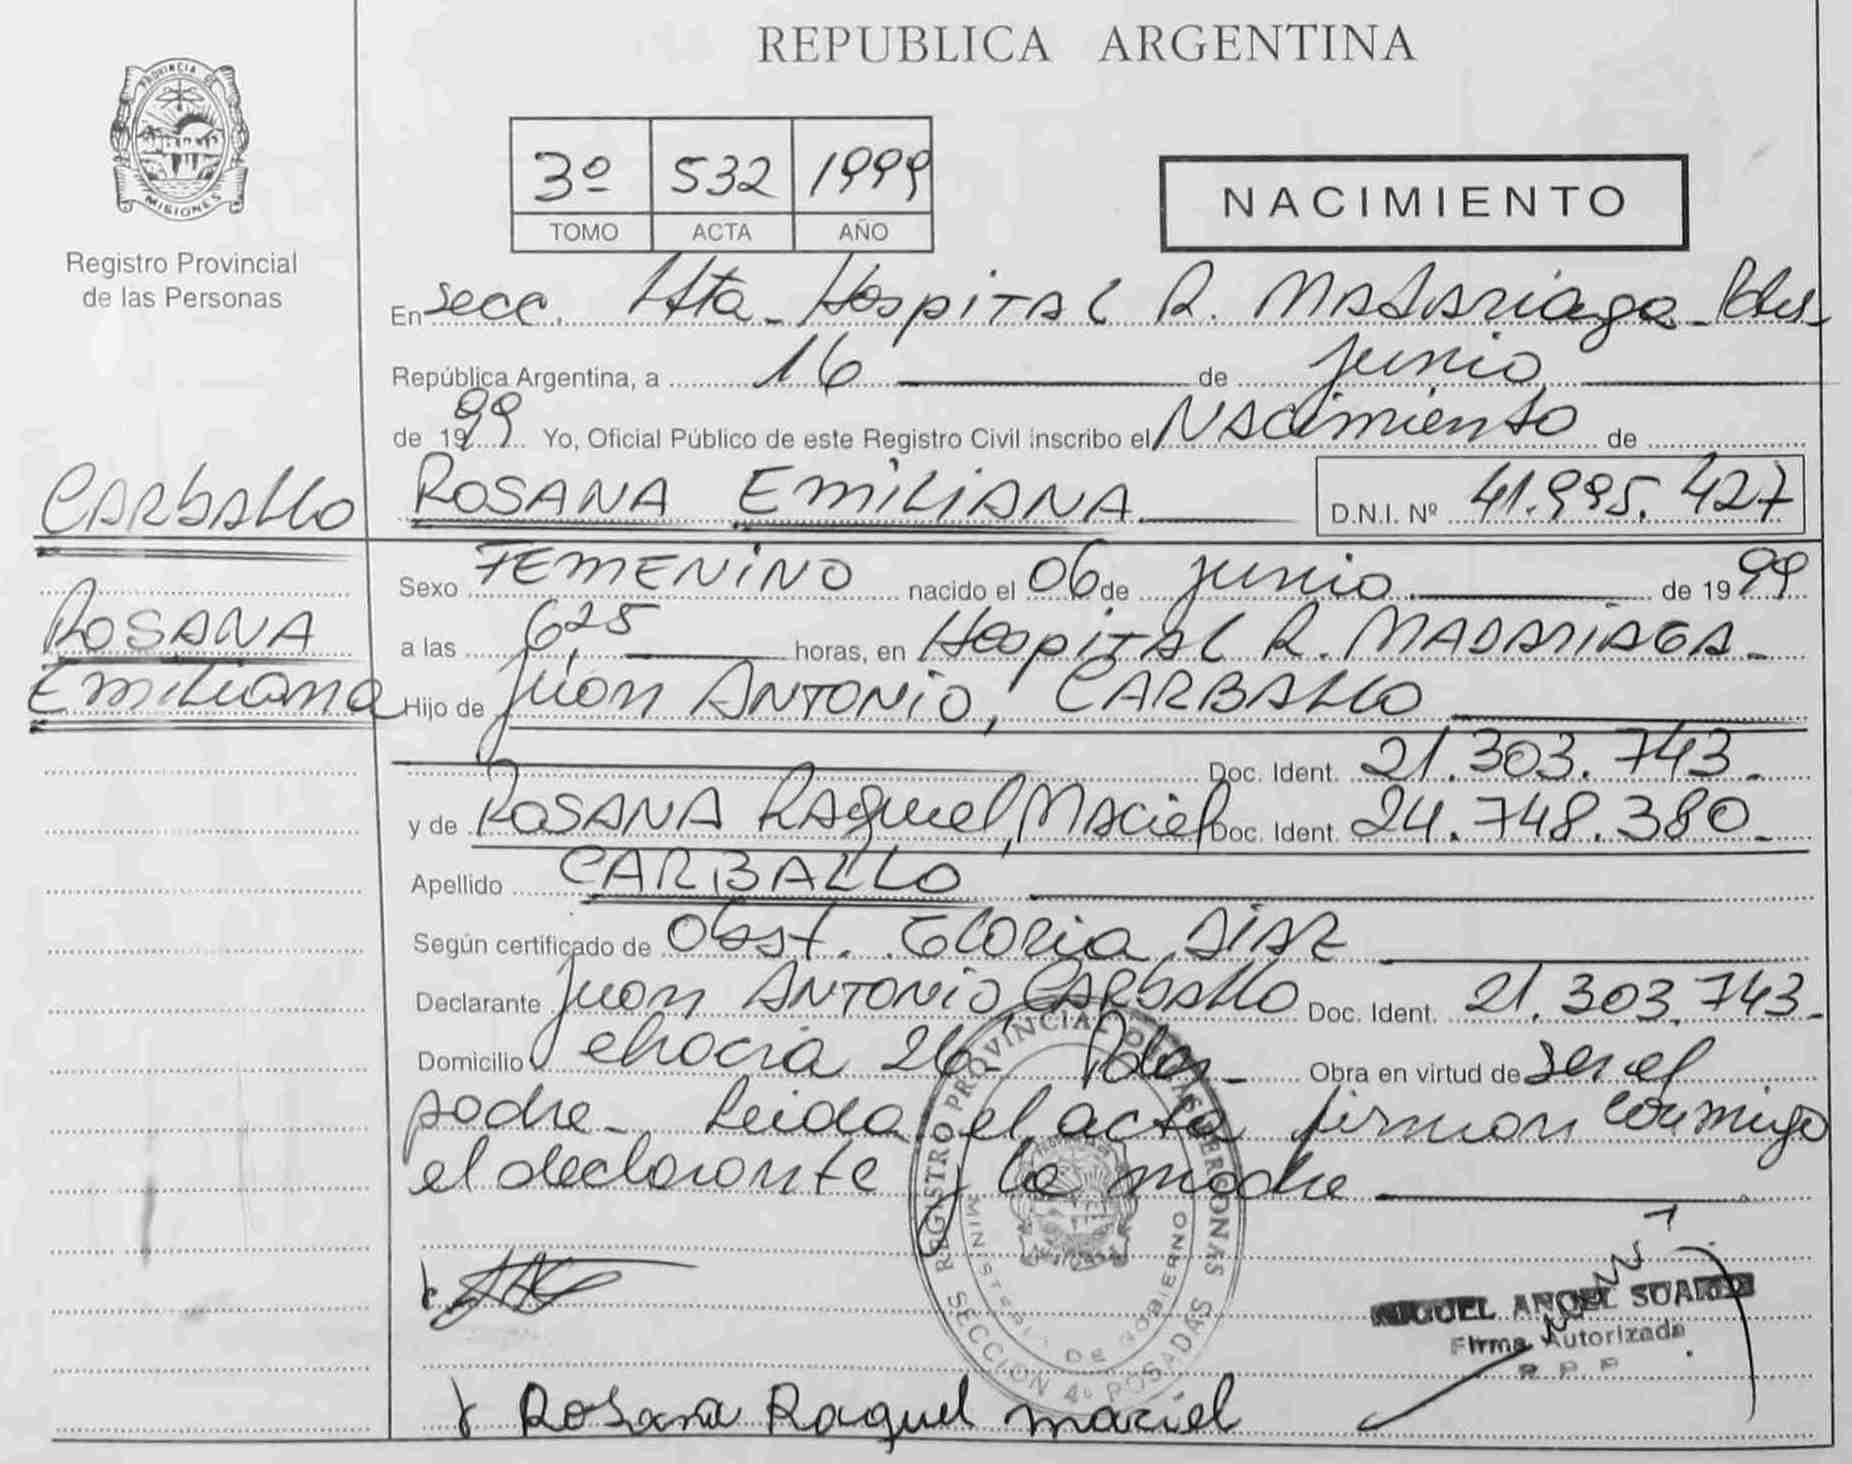 REPUBLICA ARGENTINA
PROVINCIA DE
MISIONES
Registro Provincial
de las Personas
3º 532 1999
TOMO ACTA AÑO
NACIMIENTO
En secc. 4ta. Hospital R. Madariaga - Pdas -
República Argentina, a 16 de junio
de 1999 Yo, Oficial Público de este Registro Civil inscribo el Nacimiento de
CARBALLO
ROSANA EMILIANA
D.N.I. Nº 41.995.427
Sexo FEMENINO nacido el 06 de junio de 1999
ROSANA
Emiliana
a las 6,25 horas, en Hospital R. MADARIAGA -
Hijo de Juan ANTONIO, CARBALLO
Doc. Ident. 21.303.743.
y de ROSANA Raquel, Maciel Doc. Ident. 24.748.380 -
Apellido CARBALLO
Según certificado de Obst. Gloria DIAZ
Declarante Juan ANTONIO CARBALLO Doc. Ident. 21.303.743 -
Domicilio 26 Pdas - Obra en virtud de ser el
padre - Leida el acta firman conmigo
el declarante y la madre
REGISTRO PROVINCIAL DE LAS PERSONAS
MINISTERIO DE GOBIERNO
SECCION 4º POSADAS
MIGUEL ANGEL SUAREZ
Firma Autorizada
R P P
Rosana Raquel maciel